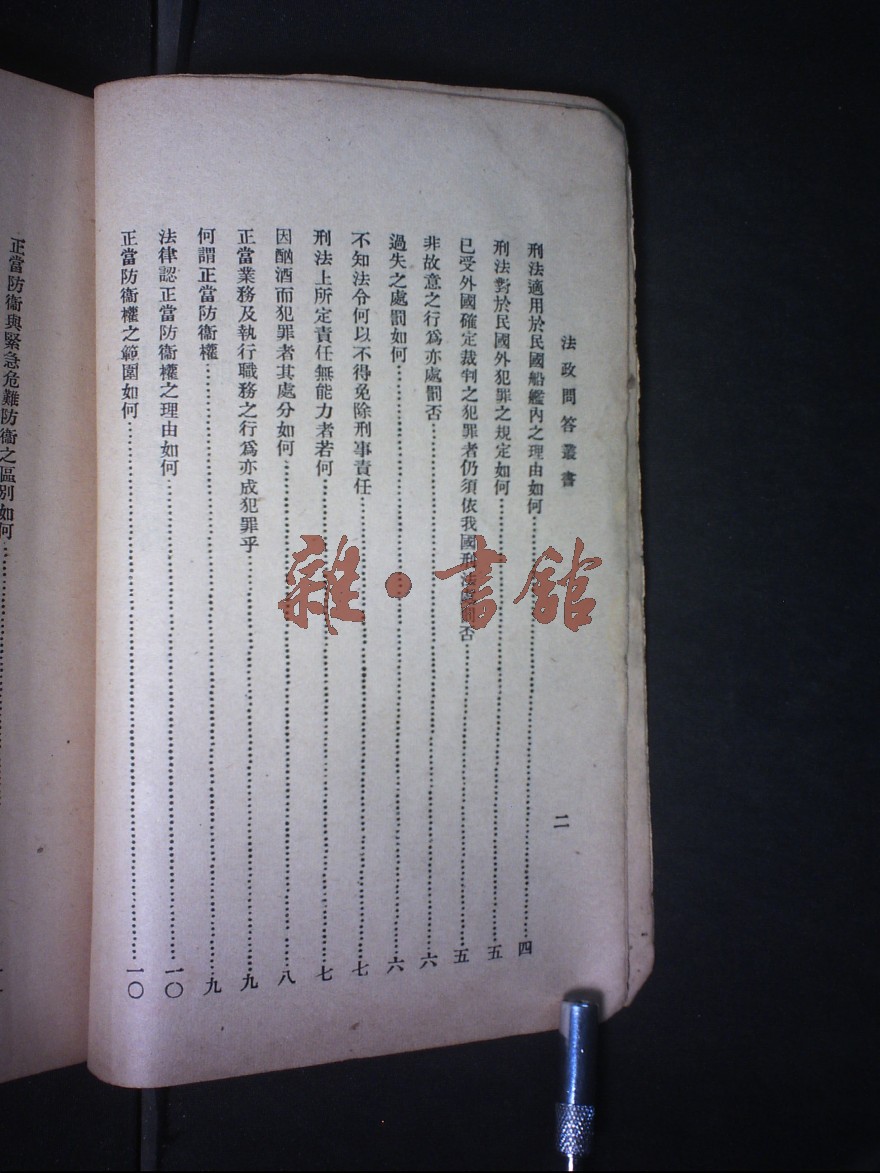 法政問答叢書
二
刑法適用於民國船艦內之理由如何……四
刑法對於民國外犯罪之規定如何……五
已受外國確定裁判之犯罪者仍須依我國刑法處罰否……五
非故意之行爲亦處罰否……六
過失之處罰如何……六
不知法令何以不得免除刑事責任……七
刑法上所定責任無能力者若何……七
因酗酒而犯罪者其處分如何……八
正當業務及執行職務之行爲亦成犯罪乎……九
何謂正當防衞權……九
法律認正當防衞權之理由如何……一〇
正當防衞權之範圍如何……一〇
正當防衞與緊急危難防衞之區別如何……
雜·書館